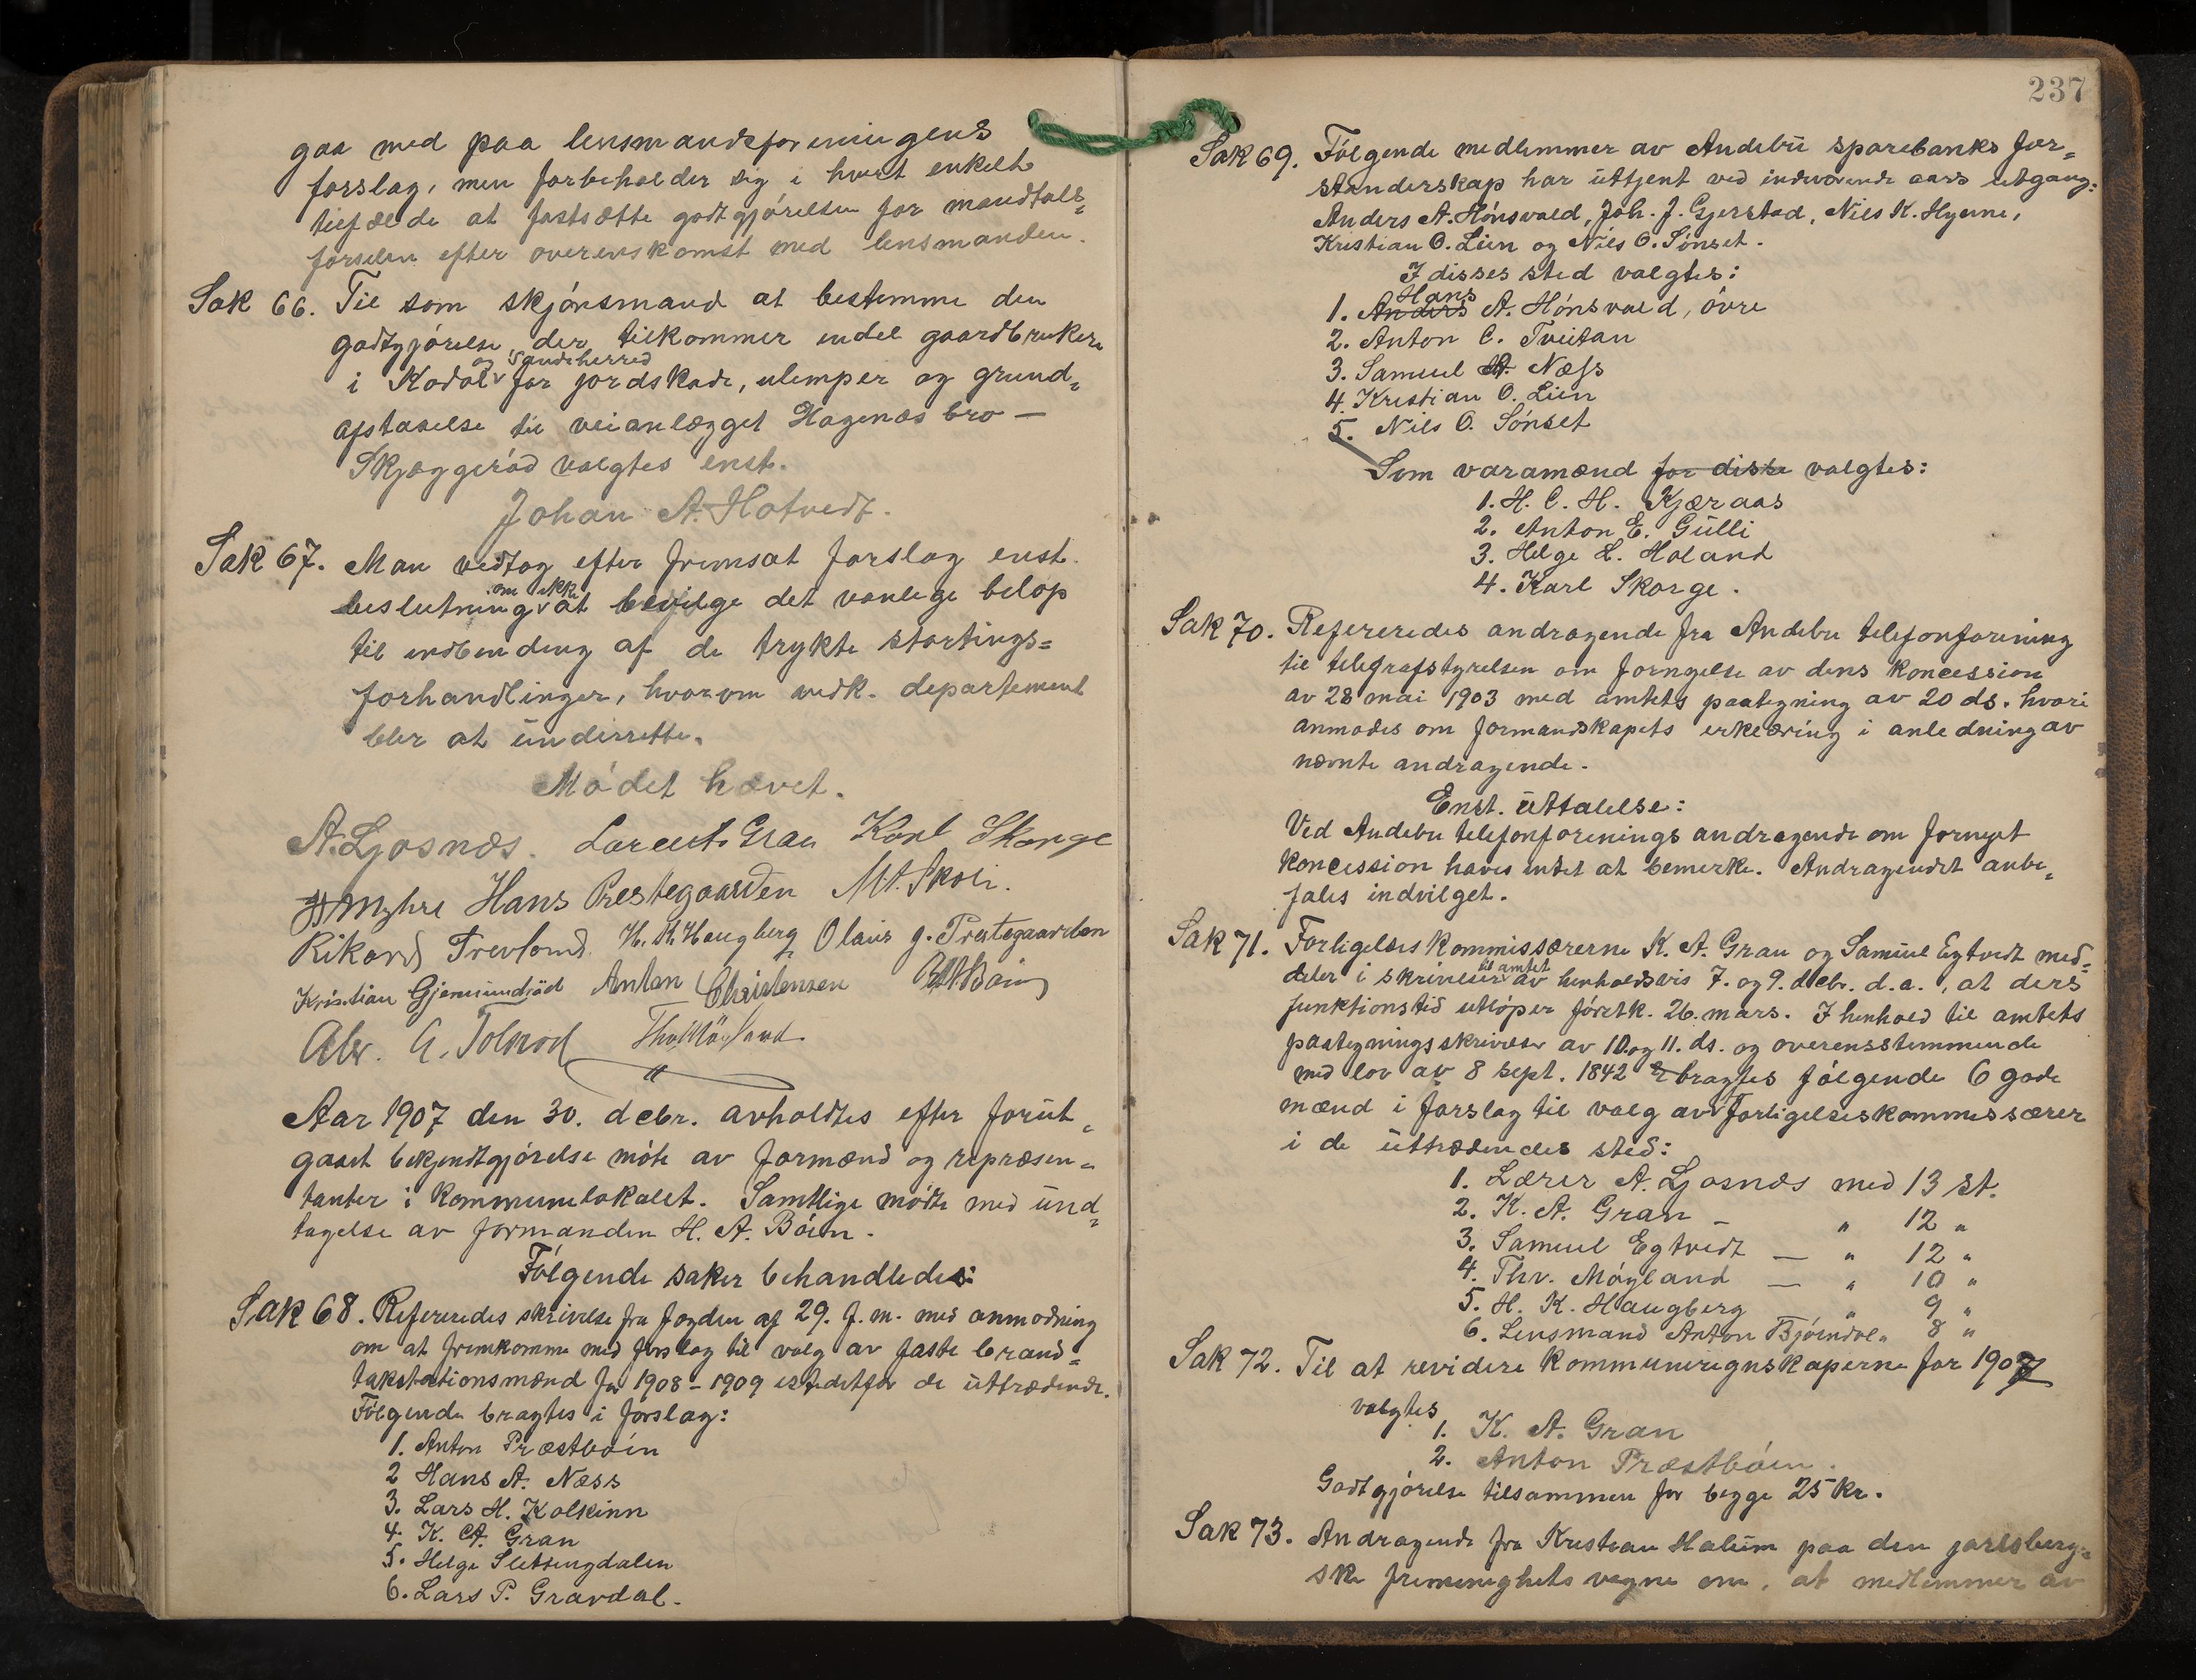 gaa med paa lensmandsforeningens
forslag, men forbeholder sig i hvert enkelt
tilfælde at fastsætte godtgjórelsen for mandtals-
förselen efter overenskomst med lensmanden.
Sak 66. Til som skjónsmand at bestemme den
godtgjórelse, der tilkommer endel gaardbrukere
og Sandeherred
i Kodal v for jordskade, ulemper og grund-
afstaaelse til veianlægget Hagenæs bro —
Skjæggeród valgtes enst.
Johan A. Hotvedt.
Sak 67. Man vedtog efter fremsat forslag enst.
om ikke
beslutning v at bevilge det vanlige beløp
til indbinding af de trykte stortings=
forhandlinger, hvorom vedk. departement
blir at underrette.
Módet hævet.
A. Ljosnæs. Laurits Gran Karl Skorge
Myhre Hans Prestegaarden M. A. Skoli.
Rikard Trevland. H. K. Haugberg Olaus J. Prestegaarden
Kristian Gjermundröd Anton Christensen
Abr. G. Tolsrod Tho Möyland
Aar 1907 den 30. debr. avholdtes efter forut-
gaaet bekjendtgjórelse móte av formænd og repræsen-
tanter i kommunelokalet. Samtlige módte med und-
tagelse av formanden H. A. Bóen.
Fólgende saker behandledes:
Sak 68. Refereredes skrivelse fra fogden af 29. f. m. med anmodning
om at fremkomme med forslag til valg av faste brand=
takstationsmænd for 1908-1909 istedetfor de uttrædende.
Fólgende bragtes i forslag:
1. Anton Præstbóen
2 Hans A. Næss
3. Lars H. Kolkinn
4. K. A. Gran
5. Helge Slettingdalen
6. Lars P. Gravdal.
237
Sak 69. Fólgende medlemmer av Andebu sparebanks for=
standerskap har uttjent ved indeværende aars utgang:
Anders A. Hónsvald, Joh. J. Gjerstad, Nils K. Hyerne,
Kristian O. Lien og Nils O. Sónset.
I disses sted valgtes:
Hans
1. Anders A. Hónsvald, óvre
2. Anton C. Tveitan
3. Samuel A. Næss
4. Kristian O. Lien
5. Nils O. Sónset
Som varamænd for disse valgtes:
1. H. C. H. Kjæraas
2. Anton E. Gulli
3. Helge L. Holand
4. Karl Skorge.
Sak 70. Refereredes andragende fra Andebu telefonforening
til telegrafstyrelsen om fornyelse av dens koncession
av 28 mai 1903 med amtets paategning av 20 ds. hvori
anmodes om formandskapets erklæring i anledning av
nævnte andragende.
Enst. uttalelse:
Ved Andebu telefonforenings andragende om fornyet
koncession haves intet at bemerke. Andragendet anbe-
fales indvilget.
Sak 71. Forligelseskommissærerne K. A. Gran og Samuel Egtvedt med-
til amtet
deler i skrivelser v av henholdsvis 7. og 9. decbr. d. a., at deres
funktionstid utlóper fórstk. 26. mars. I henhold til amtets
paategningsskrivelser av 10. og 11. ds. og overensstemmende
med lov av 8 sept. 1842 bragtes fólgende 6 gode
mænd i forslag til valg av forligelseskommissærer
i de uttrædendes sted:
1. Lærer A. Ljosnæs med 13 st.
2. K. A. Gran — " 12 "
3. Samuel Egtvedt — " 12 "
4. Thv. Móyland — " 10 "
5. H. K. Haugberg " 9 "
6. Lensmand Anton Bjórndal " 8 "
Sak 72. Til at revidere kommuneregnskaperne for 1907
valgtes
1. K. A. Gran
2. Anton Præstbóen.
Godtgjórelse tilsammen for begge 25 kr.
Sak 73. Andragende fra Kristian Halum paa den jarlsberg-
ske frimenighets vegne om, at medlemmer av